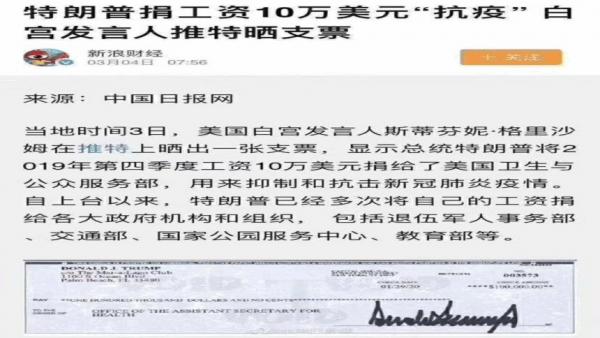 特朗普捐工资10万美元“抗疫” 白
宫发言人推特晒支票
新浪财经
03月04日 07:56
+ 关注
来源：中国日报网
当地时间3日，美国白宫发言人斯蒂芬妮·格里沙
姆在推特上晒出一张支票，显示总统特朗普将2
019年第四季度工资10万美元捐给了美国卫生与
公众服务部，用来抑制和抗击新冠肺炎疫情。
自上台以来，特朗普已经多次将自己的工资捐
给各大政府机构和组织，包括退伍军人事务部
、交通部、国家公园服务中心、教育部等。
DONALD J. TRUMP
c/o The Mar-a-Lago Club
1100 S Ocean Blvd
Palm Beach, FL 33480
NO. 003573
CHECK DATE
01/29/20
CHECK AMOUNT
***$100,000.00**
PAY **ONE HUNDRED THOUSAND DOLLARS AND NO CENTS
OFFICE OF THE ASSISTANT SECRETARY FOR
HEALTH